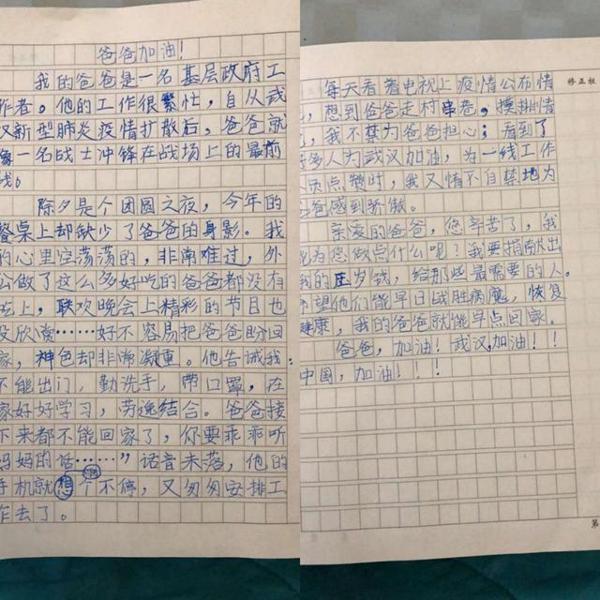 爸爸加油！
我的爸爸是一名基层政府工
作者。他的工作很繁忙，自从武
汉新型肺炎疫情扩散后，爸爸就
像一名战士冲锋在战场上的最前
线。
除夕是个团圆之夜，今年的
餐桌上却缺少了爸爸的身影。我
的心里空荡荡的，非常难过，外
公做了这么多好吃的爸爸都没有
吃上，联欢晚会上精彩的节目也
没欣赏……好不容易把爸爸盼回
家，神色却非常凝重。他告诫我：
不能出门，勤洗手，带口罩，在
家好好学习，劳逸结合。爸爸接
下来都不能回家了，你要乖乖听
妈妈的话……”话音未落，他的
手机就想个不停，又匆匆安排工
作去了。
每天看着电视上疫情公布情
，想到爸爸走村串巷，摸排情
，我不禁为爸爸担心；看到了
好多人为武汉加油，为一线工作
人员点赞时，我又情不自禁地为
爸爸感到骄傲。
亲爱的爸爸，您辛苦了，我
为您做点什么呢？我要捐献出
我的压岁钱，给那些最需要的人。
希望他们能早日战胜病魔，恢复
健康，我的爸爸就能早点回家。
爸爸，加油！武汉，加油！！
中国，加油！！！
修正栏
第